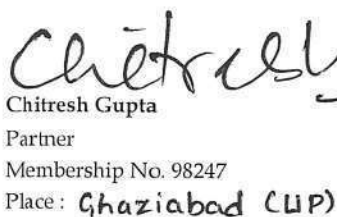 Chitresh
Chitresh Gupta
Partner
Membership No. 98247
Place : Ghaziabad (UP)